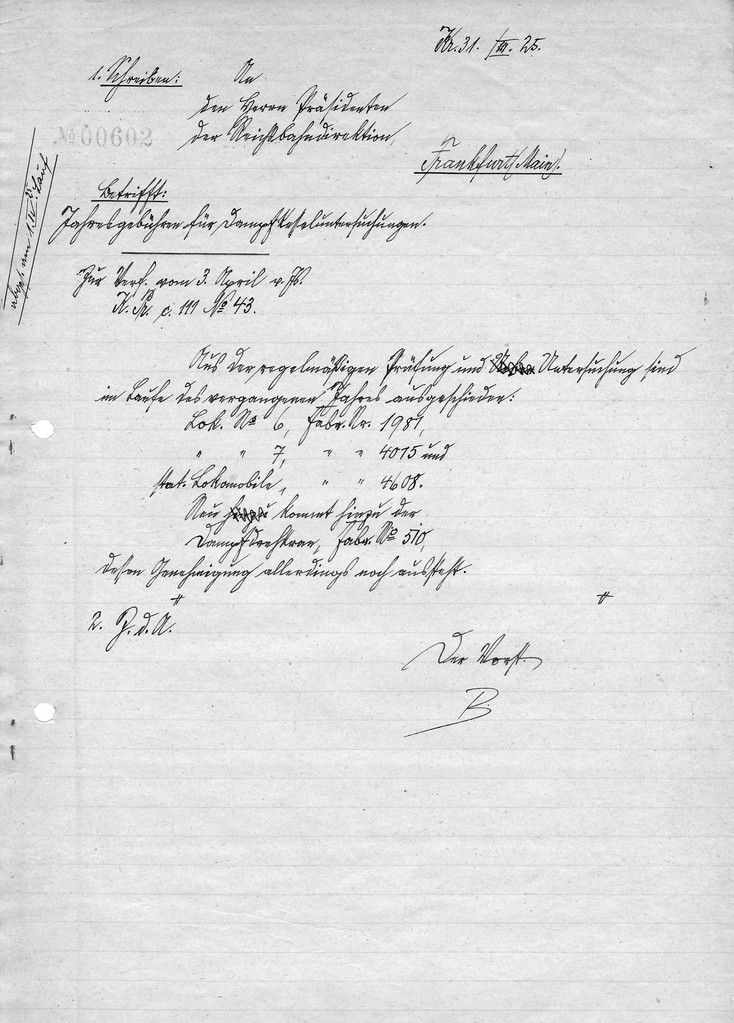 Kr. 31. III. 25.
1. Schreiben: An
den Herrn Präsidenten
der Reichsbahndirektion,
Frankfurt/Main.
No 00602
Betrifft:
Jahresgebühren für Dampfkesseluntersuchungen.
Zur Verf. vom 3. April v. Js.
No 43.
Aus der regelmäßigen Prüfung und Untersuchung sind
im Laufe des vergangenen Jahres ausgeschieden:
Lok. No 6, Fabr. Nr. 1981,
" " 7, " " 4015 und
stat. Lokomobile, " " 4608.
Neu kommt hinzu der
Dampfdrehkran, Fabr. No 510,
dessen Genehmigung allerdings noch aussteht.
2. Z. d. A.
Der Vorst.
B.